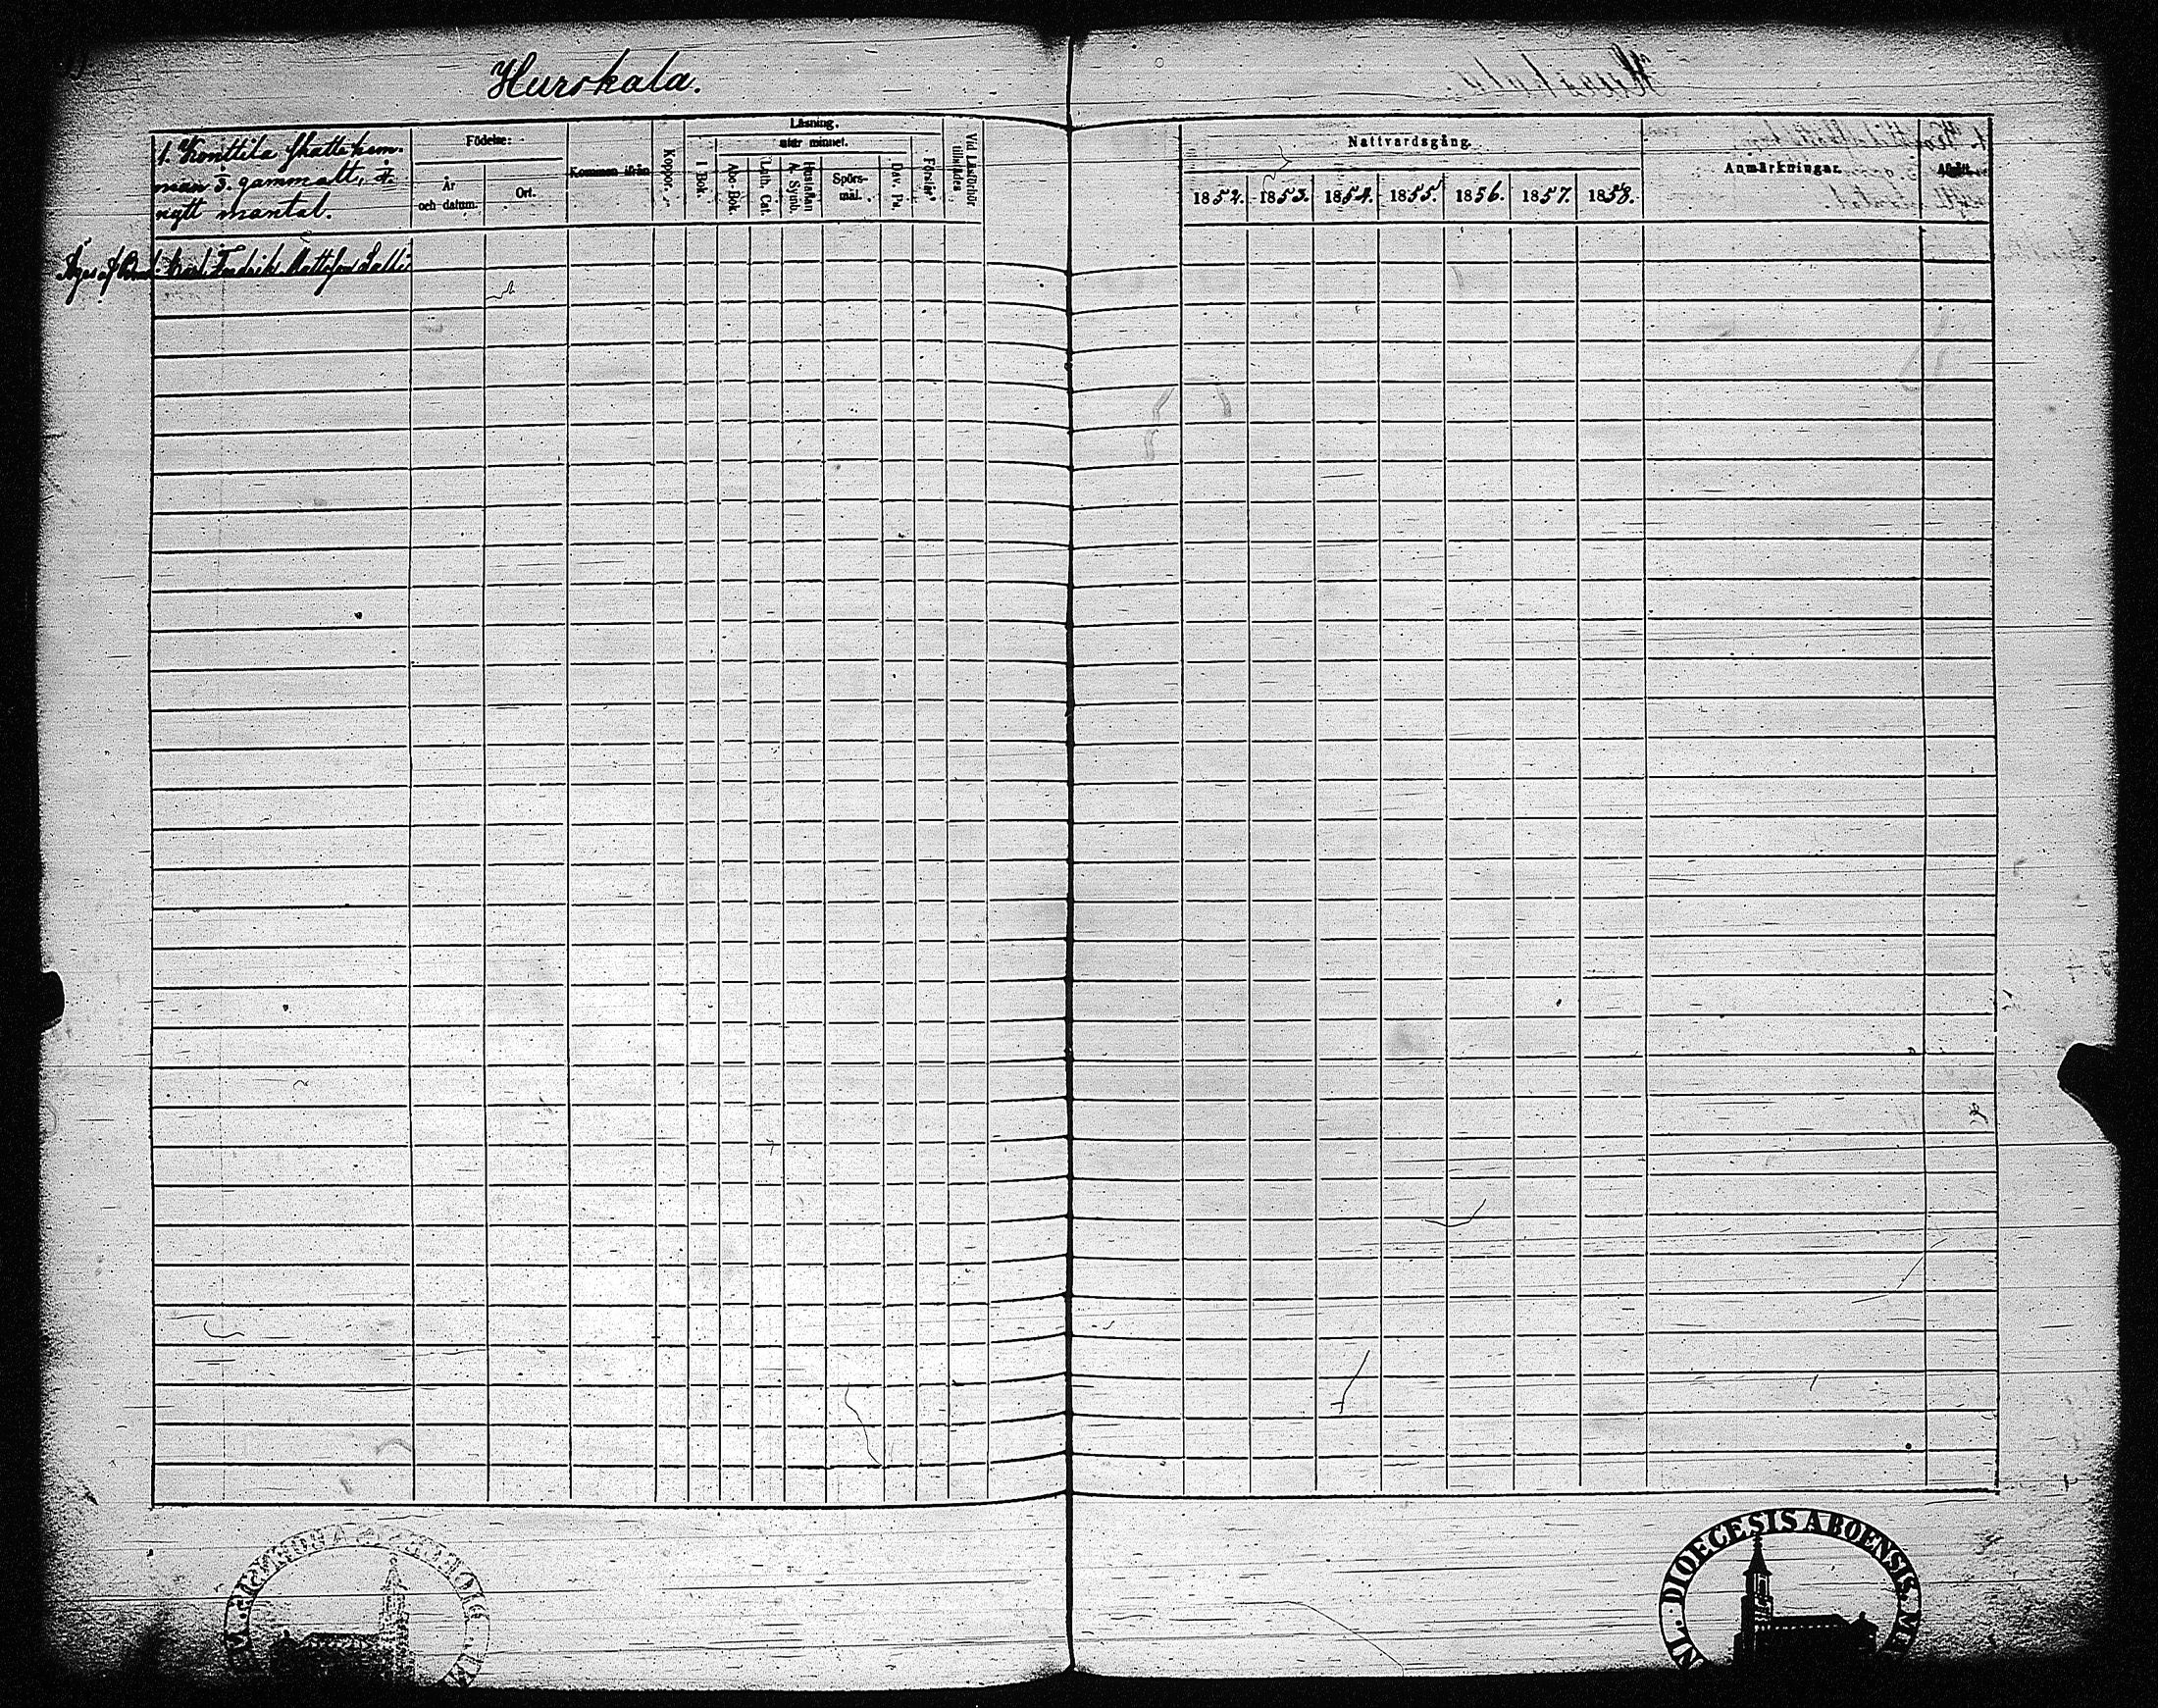 Hurskala.
1. Konttila Skattehem-
man gammalt,
nytt mantal.
Födelse:
År
och datum.
Ort.
Kommen ifrån
Koppor.
Läsning.
utur minnet.
I Bok.
Abc-Bok.
Luth. Cat.
Hustaflan
A. Symb.
Spörs-
mål.
Dav. Ps.
Förstår
Vid Läsförhör
tillstädes
Äges af Bond. Karl Fredrik Mattsson
Nattvardsgång.
1852. 1853. 1854. 1855. 1856. 1857. 1858.
Anmärkningar.
Afgått.
DIOECESIS ABOENSIS.